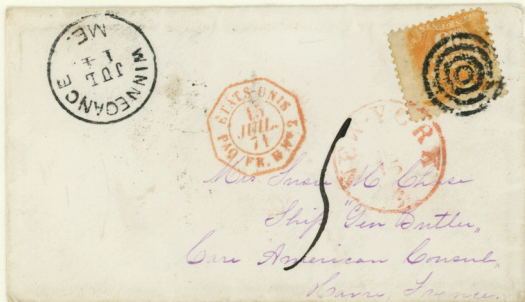 MINNEGANCE
JUL
14
ME.
ETATS-UNIS
15
JUIL.
71
PAQ. FR. B No 2
NEW-YORK
5
Mrs Susie M. Chase
Ship "Gen Butler,
Care American Consul,
Havre, France.